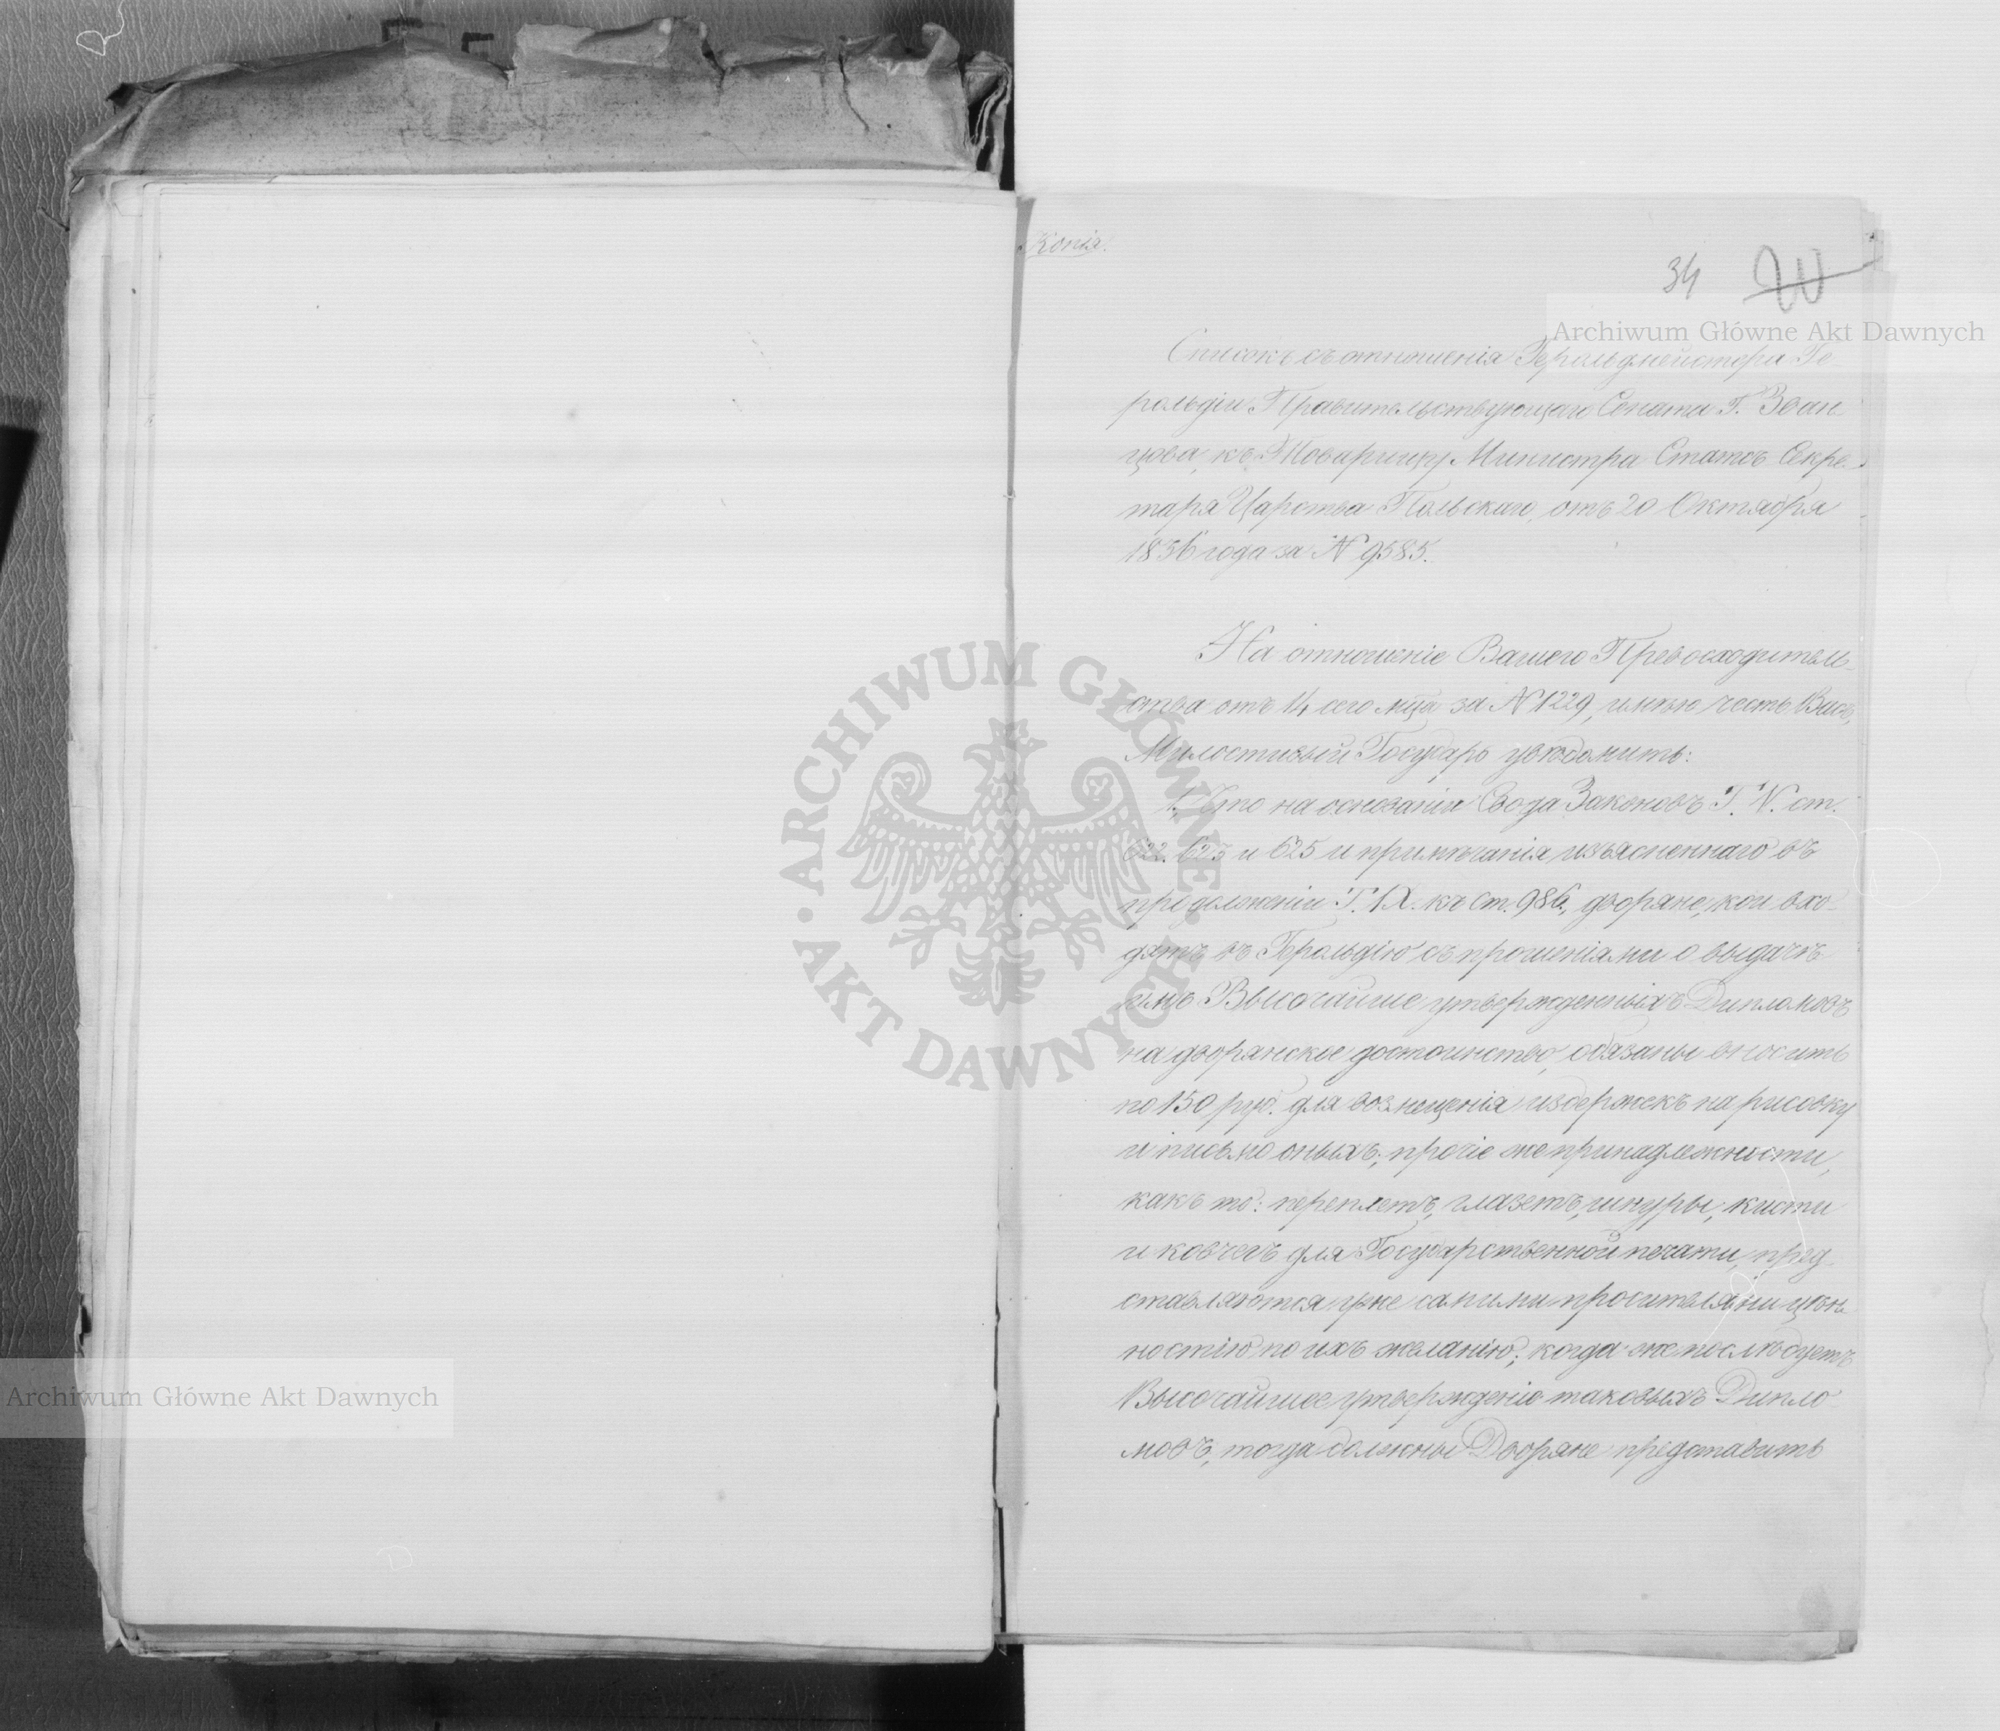 Копія.
34
Archiwum Główne Akt Dawnych
Списокъ съ отношенія Герольдмейстера Ге-
рольдіи Правительствующаго Сената Г. Зван
цова, къ Товарищу Министра Статсъ Секре-
таря Царства Польскаго, отъ 20 Октября
1836 года за N 9585.
На отношеніе Вашего Превосходитель-
ства отъ 14 сего мца за N 1229, имѣю честь Васъ,
Милостивый Государь увѣдомить:
1, Что на основаніи Свода Законовъ Т. V. ст.
622. 623 и 625 и примѣчанія изъясненнаго въ
продолженіи Т. IX. къ ст. 986, дворяне, кои вхо-
дятъ въ Герольдію съ прошеніями о выдачѣ
имъ Высочайше утвержденныхъ Дипломовъ
на дворянское достоинство, обязаны вносить
по 150 руб. для возмещенія издержекъ на рисовку
и письмо оныхъ; прочіе же принадлежности,
какъ то: переплетъ, глазетъ, шнуры, кисти
и ковчегъ для Государственной печати, пред
ставляются уже самими просителями цѣн
ностію по ихъ желанію; когда же послѣдуетъ
Высочайшее утвержденіе таковыхъ Дипло-
мовъ, тогда должны Дворяне представить
ARCHIWUM GŁÓWNE AKT DAWNYCH
Archiwum Główne Akt Dawnych